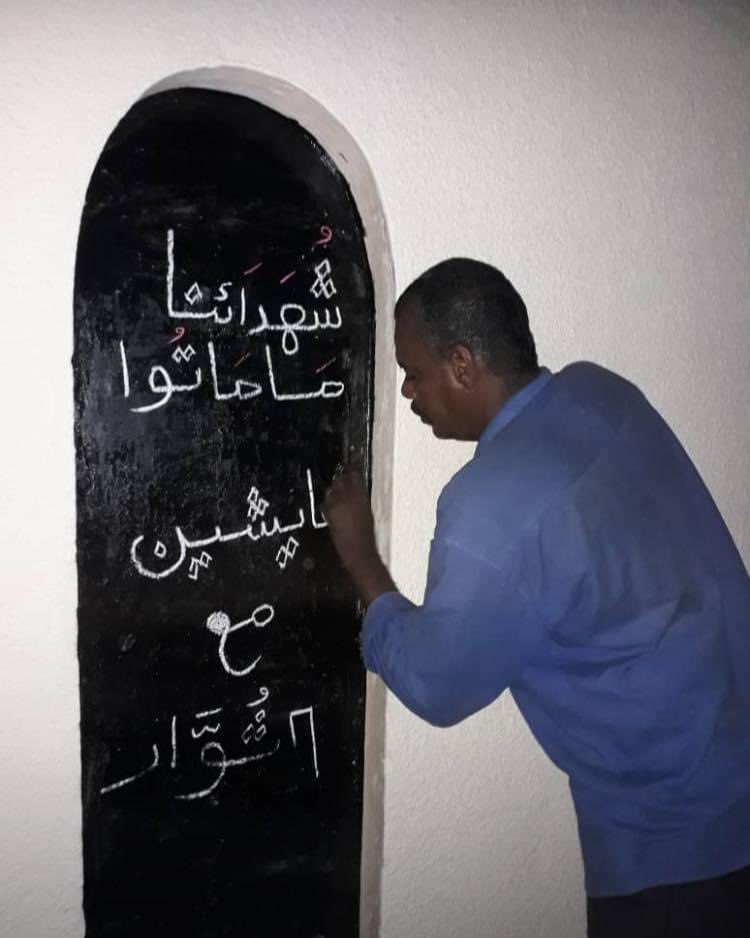 شُهَدَائنا
مَـامَاتُوا
عايشين
مع
الثُوَّار